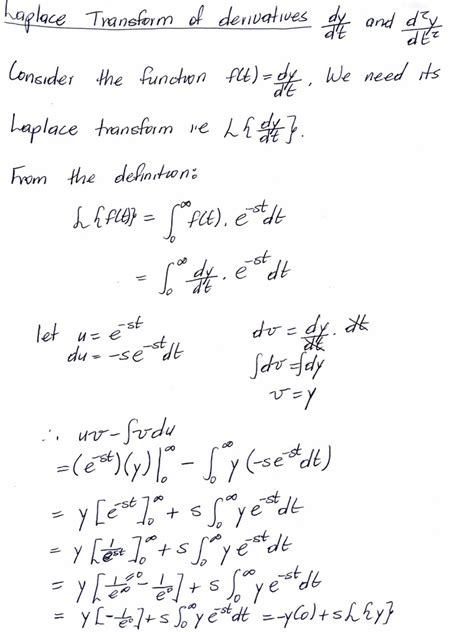 Laplace Transform of derivatives dy/dt and d²y/dt²
Consider the function f(t) = dy/dt. We need its
Laplace transform ie L{dy/dt}.
From the definition:
L{f(t)} = ∫₀^∞ f(t). e^-st dt
= ∫₀^∞ dy/dt . e^-st dt
let u = e^-st dv = dy/dt . dt
du = -se^-st dt ∫dv = ∫dy
v = y
∴ uv - ∫vdu
= (e^-st)(y)|₀^∞ - ∫₀^∞ y(-se^-st dt)
= y[e^-st]₀^∞ + s∫₀^∞ ye^-st dt
= y[1/e^st]₀^∞ + s∫₀^∞ ye^-st dt
= y[1/e^∞ → 0 - 1/e^0] + s∫₀^∞ ye^-st dt
= y[-1/e^0] + s∫₀^∞ ye^-st dt = -y(0) + sL{y}